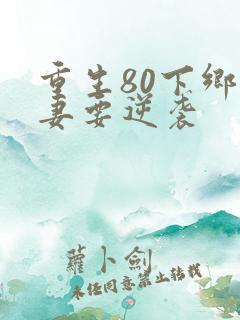 重生80下鄉
妻要逆袭
蘿卜劍
未经同意禁止转载